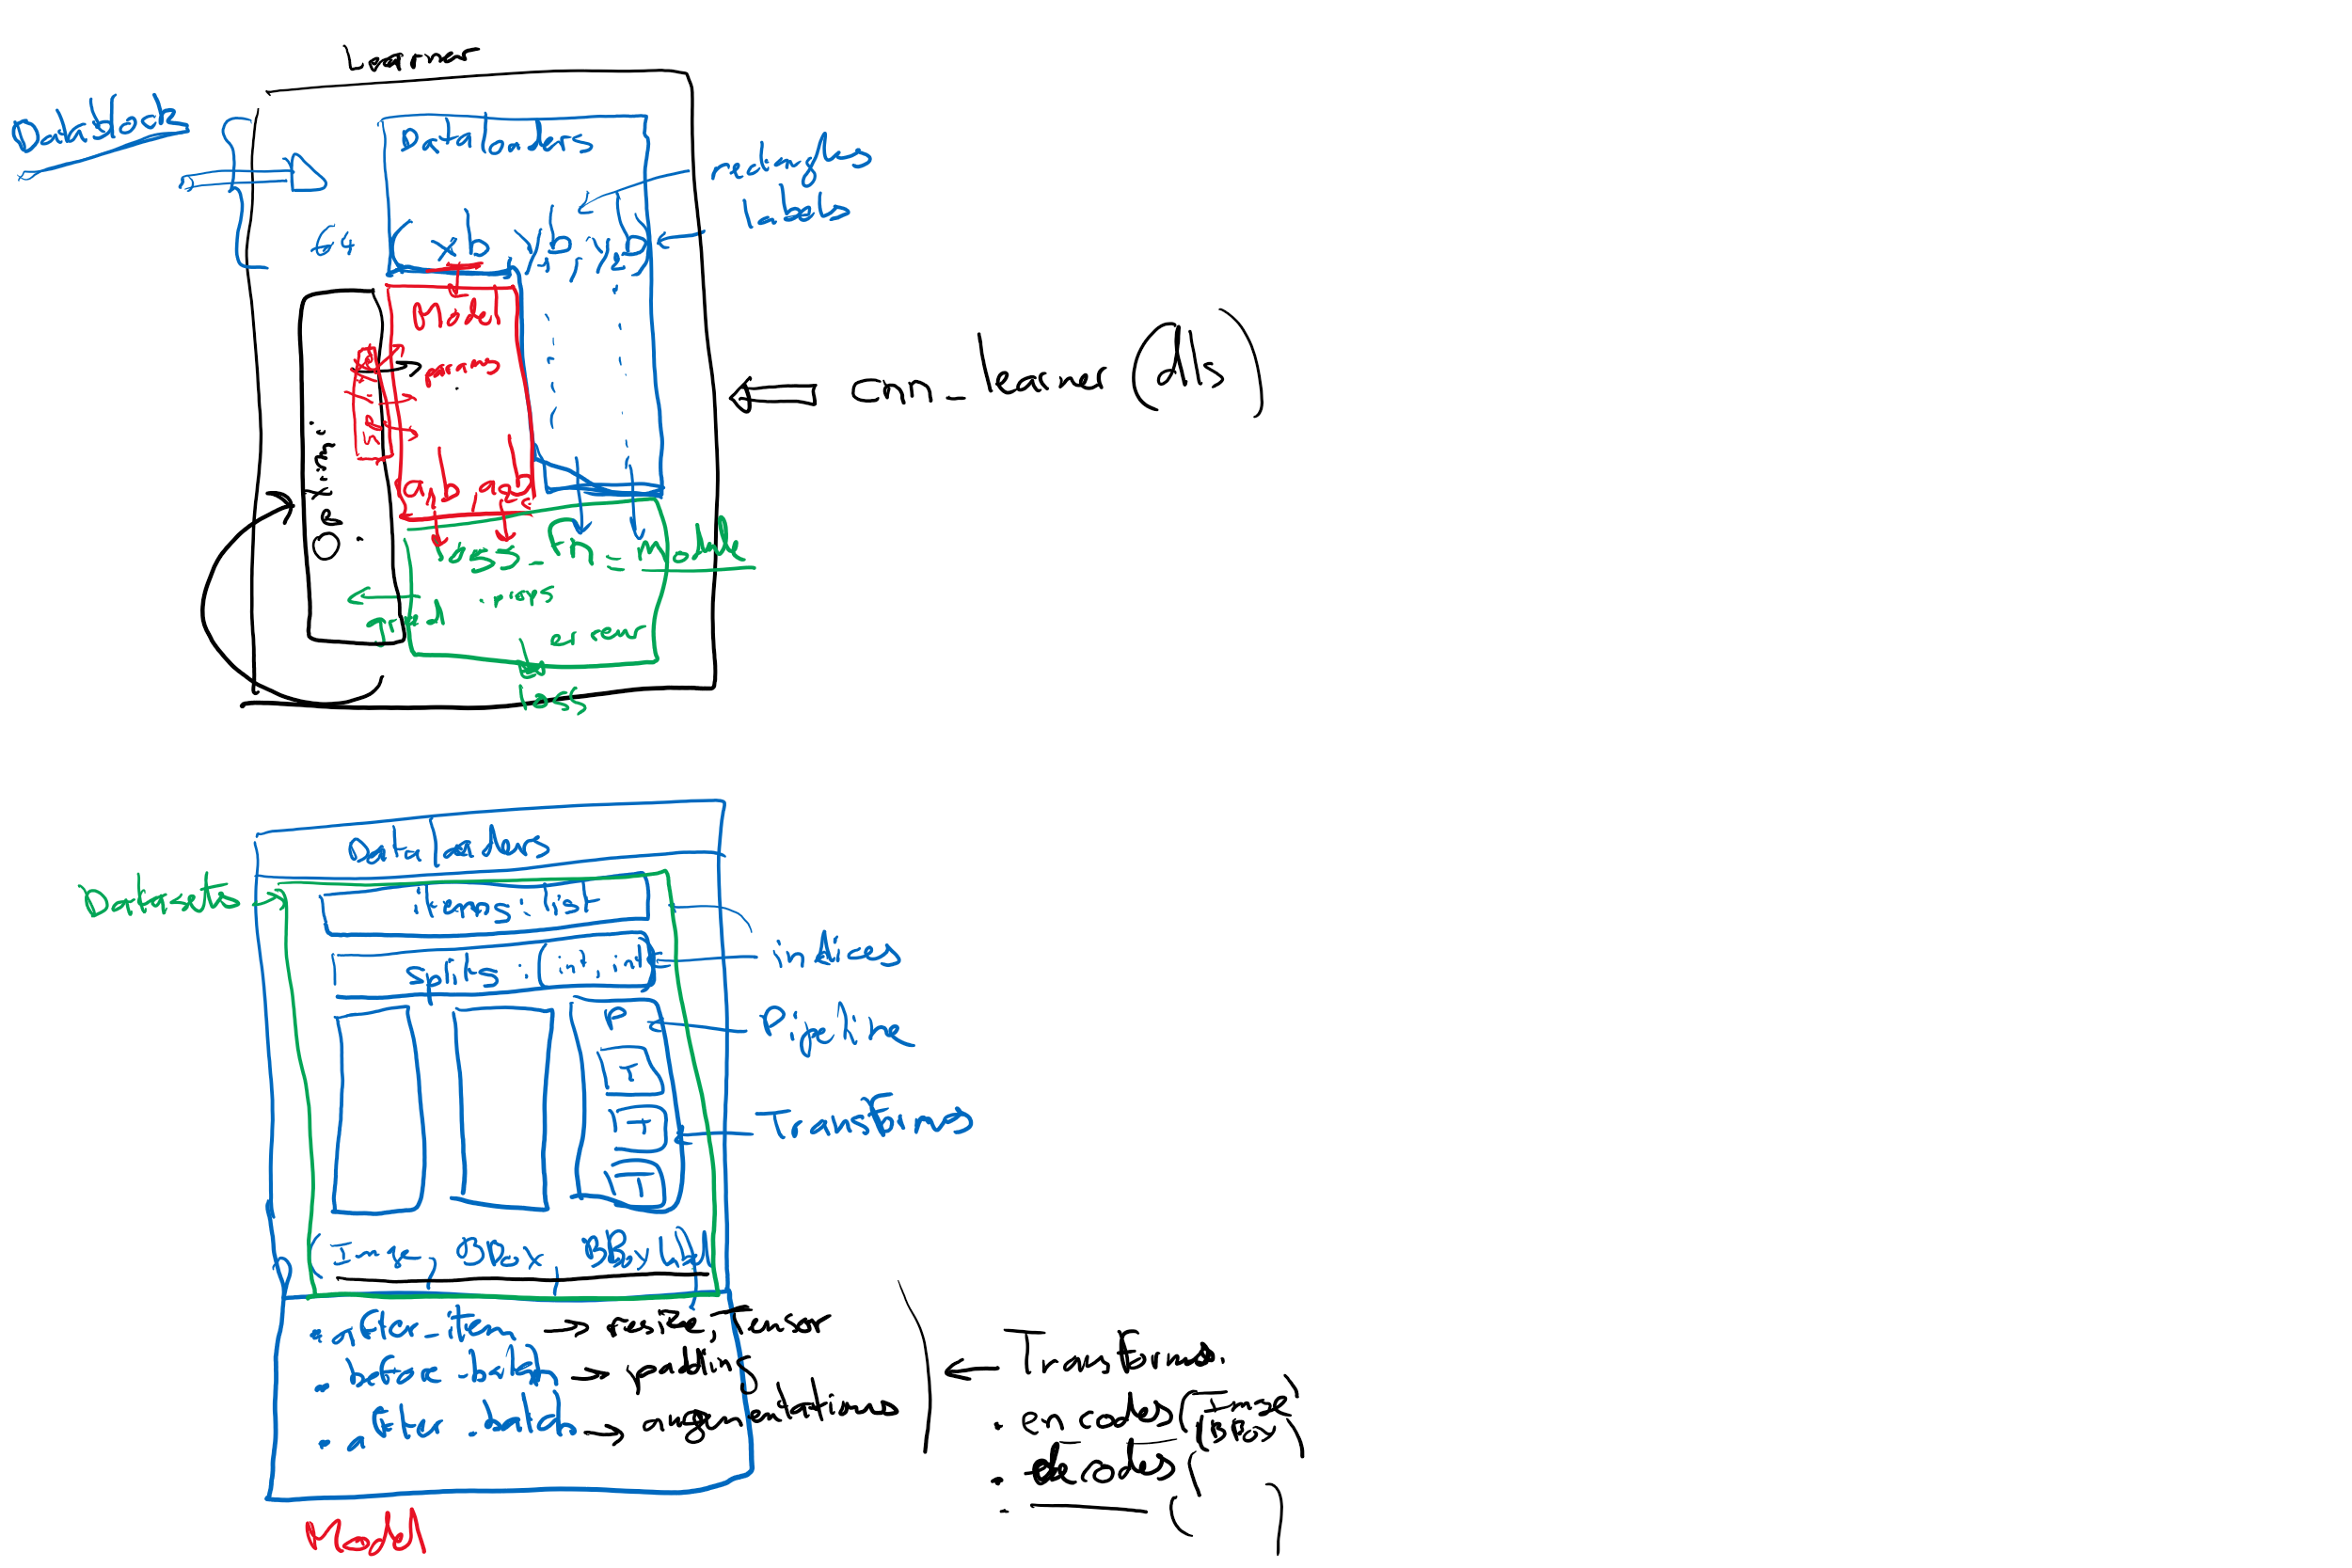 Learner
Datablock
Dataloaders
rectangles
labels
64
xb yb, y2b
Model
params
Optimi.
cnn_learner (dls)
loss_fn_module
. preps
grad
error
loss
Dataloaders
Datasets
items: list
splits: (int, int)
indices
P
Pipeline
T
T
Transforms
T
(Image, BBox, BBoxLbl)
. after_item → resize, Tensor
. before_batch → padding
. after_batch → augmentations
Transforms.
. encodes (Image
BBox)
. decodes (
. ( )
Model